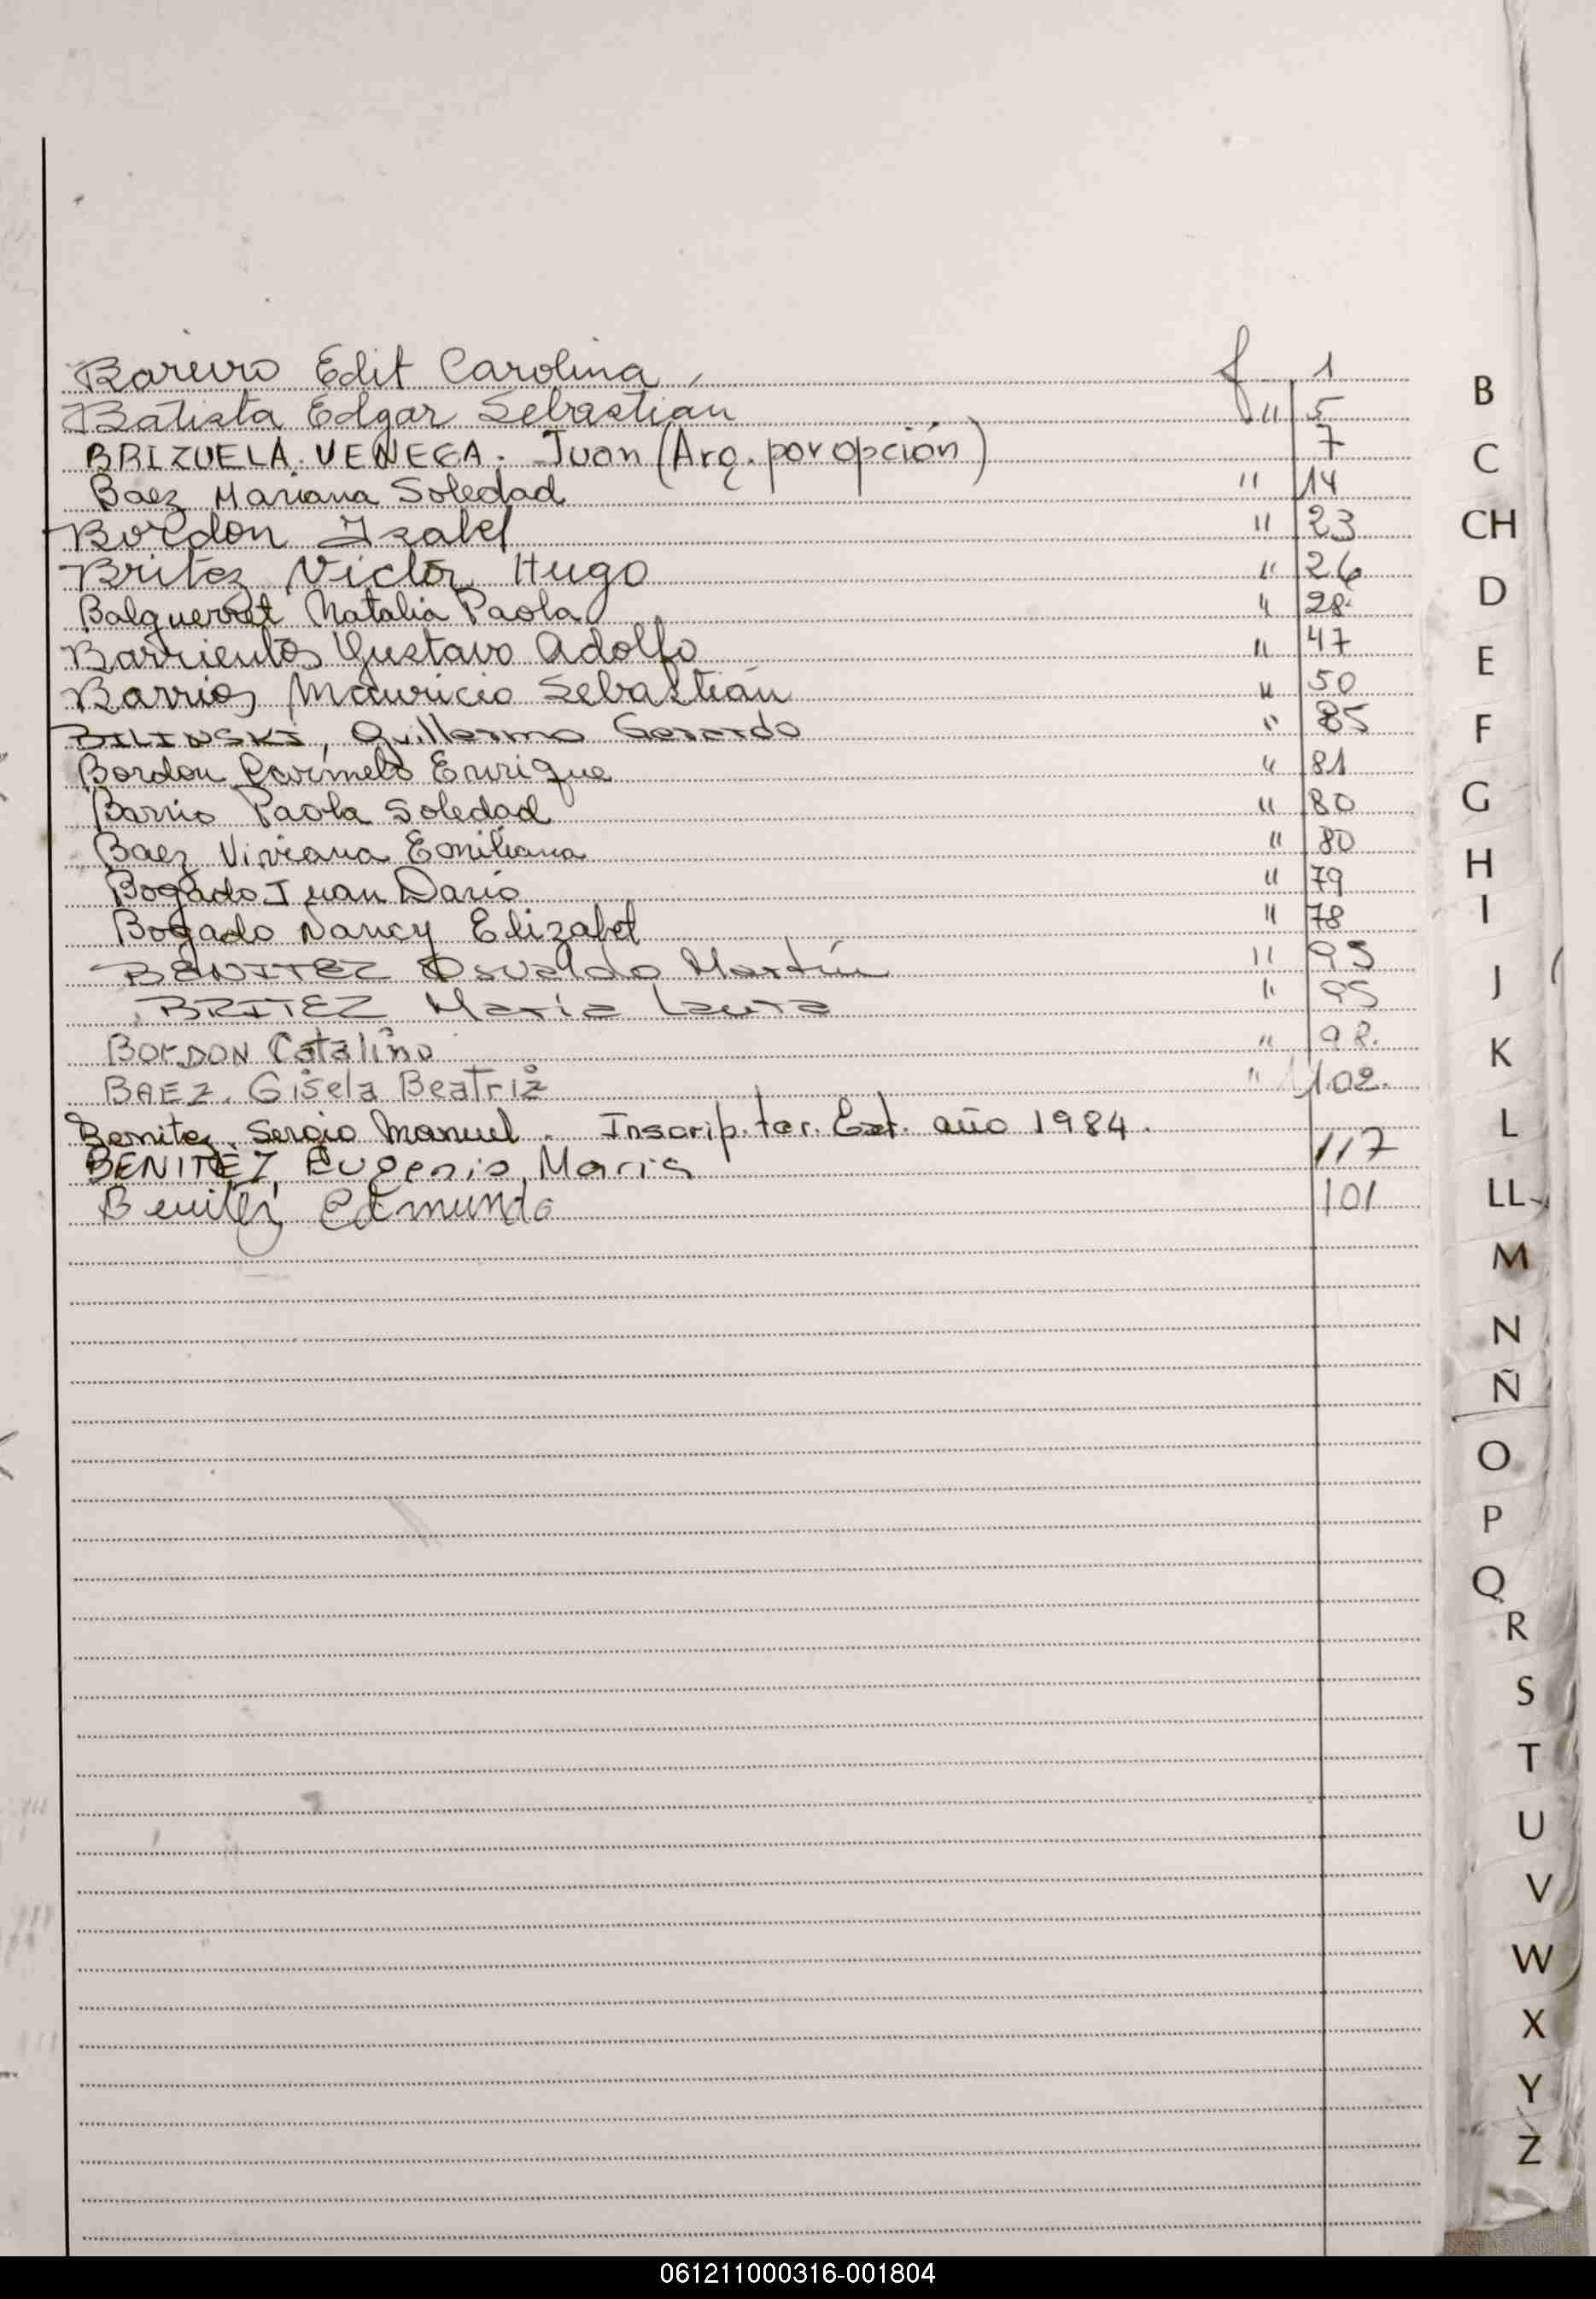 Bareiro Edit Carolina f 1
Batista Edgar Sebastian " 5
BRIZUELA VENEGA. Juan (Arg. por opción) 7
Baez Mariana Soledad " 14
Bordon Isabel " 23
Britez Victor Hugo " 26
Balguerret Natalia Paola " 28
Barrientos Gustavo Adolfo " 47
Barrios Mauricio Sebastián " 50
BILINSKI, Guillermo Gerardo " 85
Bordon Carmelo Enrique " 81
Barrio Paola Soledad " 80
Baez Viviana Emiliana " 80
Bogado Juan Dario " 79
Bogado Nancy Elizabet " 78
BENITEZ Osvaldo Martín " 95
BRITEZ María Laura " 95
BORDON Catalino " 98.
BAEZ. Gisela Beatriz " 102.
Benitez. Sergio Manuel. Inscrip. tar. Ext. año 1984.
BENITEZ, Eugenio Maris 117
Benitez, Edmundo 101
B
C
CH
D
E
F
G
H
I
J
K
L
LL
M
N
Ñ
O
P
Q
R
S
T
U
V
W
X
Y
Z
061211000316-001804